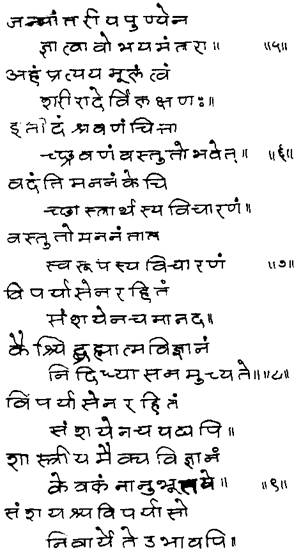 जन्मांतरीयपुण्येन
ज्ञात्वा वोभयमंतरा॥ ॥५॥
अहं प्रत्यय मूलं त्वं
शरीरादेर्विलक्षणः॥
इतीदं श्रवणं चित्ता
च्छ्रवणं वस्तुतो भवेत्॥ ॥६॥
वदंति मननं केचि
च्छास्त्रार्थस्य विचारणं॥
वस्तुतो मननं तात
स्वरूपस्य विचारणं ॥७॥
विपर्यासेन रहितं
संशयेन च मानद॥
कैश्चिद्ब्रह्मात्मविज्ञानं
निदिध्यासनमुच्यते॥॥८॥
विपर्यासेन रहितं
संशयेन च यद्यपि॥
शास्त्रीयमैक्यविज्ञानं
केवलं नानुभूतये॥ ॥९॥
संशयश्च विपर्यासो
निवार्येते उभावपि॥